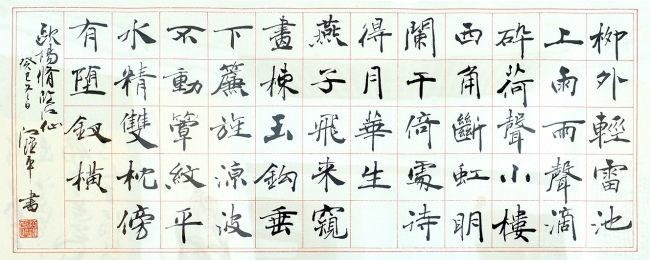 柳外輕雷池
上雨雨聲滴
碎荷聲小樓
西角斷虹明
闌干倚處待
得月華生
燕子飛来窺
畫棟玉鈎垂
下簾旌涼波
不動簟紋平
水精雙枕傍
有墮釵橫
歐陽脩臨江仙
癸巳
書